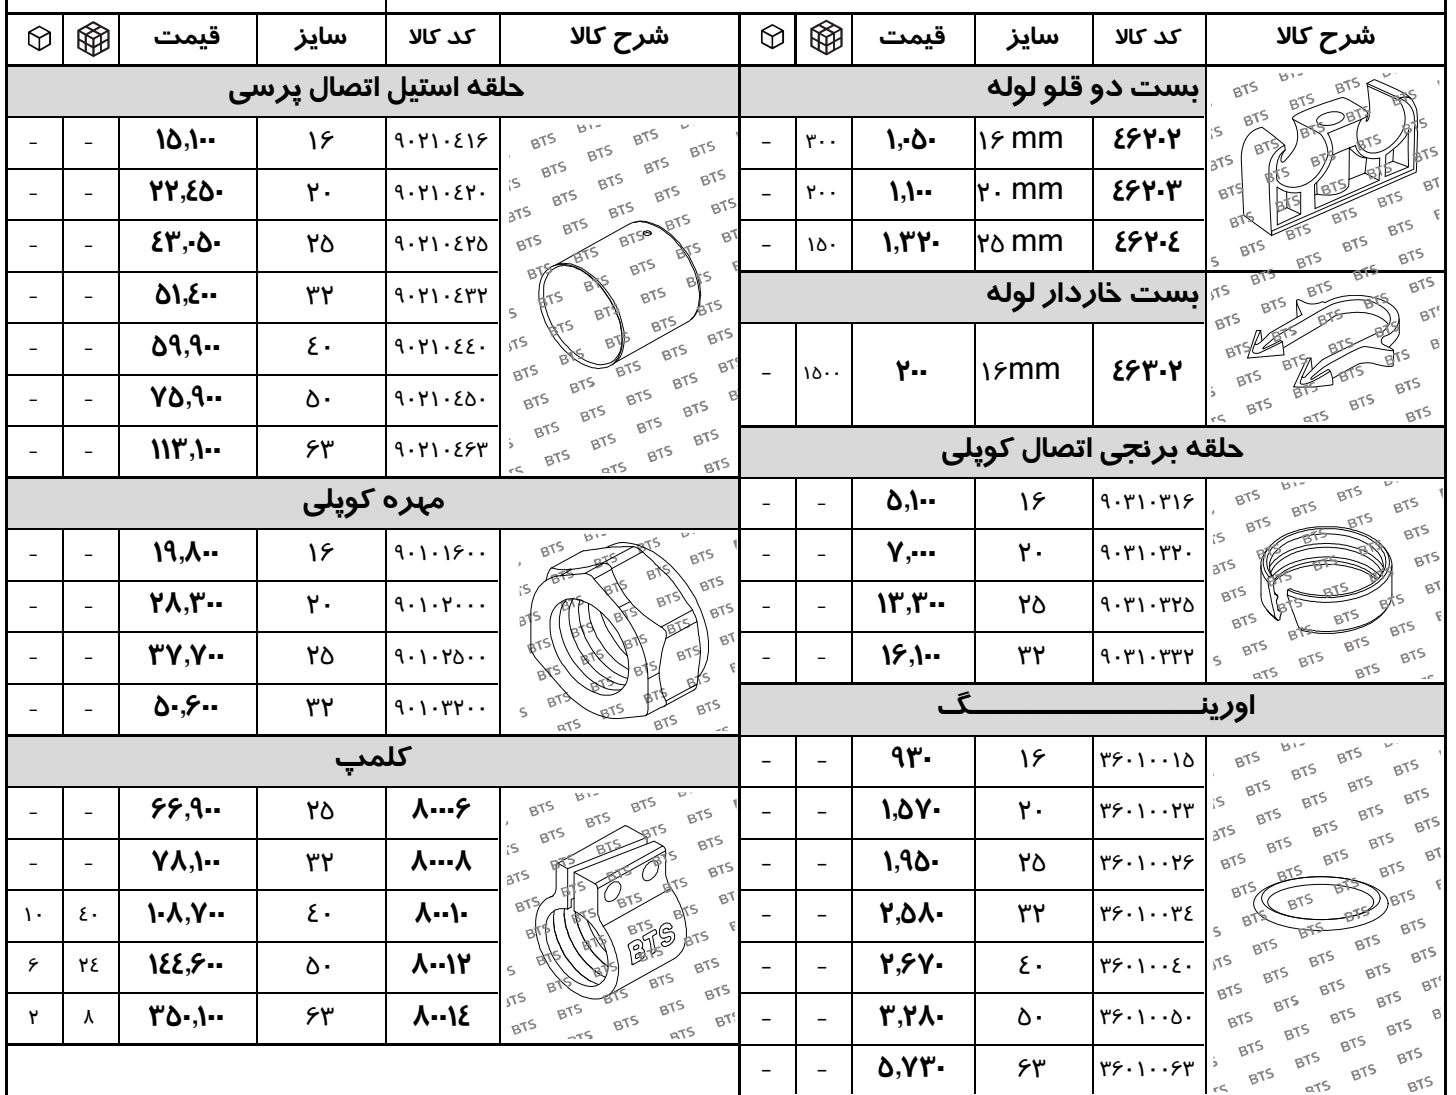 شرح کالا کد کالا سایز قیمت
بست دو قلو لوله
۴۶۲۰۲ ۱۶ mm ۱,۰۵۰ ۳۰۰ -
۴۶۲۰۳ ۲۰ mm ۱,۱۰۰ ۲۰۰ -
۴۶۲۰۴ ۲۵ mm ۱,۳۲۰ ۱۵۰ -
بست خاردار لوله
۴۶۳۰۲ ۱۶mm ۲۰۰ ۱۵۰۰ -
حلقه برنجی اتصال کوپلی
۹۰۳۱۰۳۱۶ ۱۶ ۵,۱۰۰ - -
۹۰۳۱۰۳۲۰ ۲۰ ۷,۰۰۰ - -
۹۰۳۱۰۳۲۵ ۲۵ ۱۳,۳۰۰ - -
۹۰۳۱۰۳۳۲ ۳۲ ۱۶,۱۰۰ - -
اورینــــــــگ
۳۶۰۱۰۰۱۵ ۱۶ ۹۳۰ - -
۳۶۰۱۰۰۲۳ ۲۰ ۱,۵۷۰ - -
۳۶۰۱۰۰۲۶ ۲۵ ۱,۹۵۰ - -
۳۶۰۱۰۰۳۴ ۳۲ ۲,۵۸۰ - -
۳۶۰۱۰۰۴۰ ۴۰ ۲,۶۷۰ - -
۳۶۰۱۰۰۵۰ ۵۰ ۳,۲۸۰ - -
۳۶۰۱۰۰۶۳ ۶۳ ۵,۷۳۰ - -
شرح کالا کد کالا سایز قیمت
حلقه استیل اتصال پرسی
۹۰۲۱۰۴۱۶ ۱۶ ۱۵,۱۰۰ - -
۹۰۲۱۰۴۲۰ ۲۰ ۲۲,۴۵۰ - -
۹۰۲۱۰۴۲۵ ۲۵ ۴۳,۰۵۰ - -
۹۰۲۱۰۴۳۲ ۳۲ ۵۱,۴۰۰ - -
۹۰۲۱۰۴۴۰ ۴۰ ۵۹,۹۰۰ - -
۹۰۲۱۰۴۵۰ ۵۰ ۷۵,۹۰۰ - -
۹۰۲۱۰۴۶۳ ۶۳ ۱۱۳,۱۰۰ - -
مهره کوپلی
۹۰۱۰۱۶۰۰ ۱۶ ۱۹,۸۰۰ - -
۹۰۱۰۲۰۰۰ ۲۰ ۲۸,۳۰۰ - -
۹۰۱۰۲۵۰۰ ۲۵ ۳۷,۷۰۰ - -
۹۰۱۰۳۲۰۰ ۳۲ ۵۰,۶۰۰ - -
کلمپ
۸۰۰۰۶ ۲۵ ۶۶,۹۰۰ - -
۸۰۰۰۸ ۳۲ ۷۸,۱۰۰ - -
۸۰۰۱۰ ۴۰ ۱۰۸,۷۰۰ ۴۰ ۱۰
۸۰۰۱۲ ۵۰ ۱۴۴,۶۰۰ ۲۴ ۶
۸۰۰۱۴ ۶۳ ۳۵۰,۱۰۰ ۸ ۲
BTS